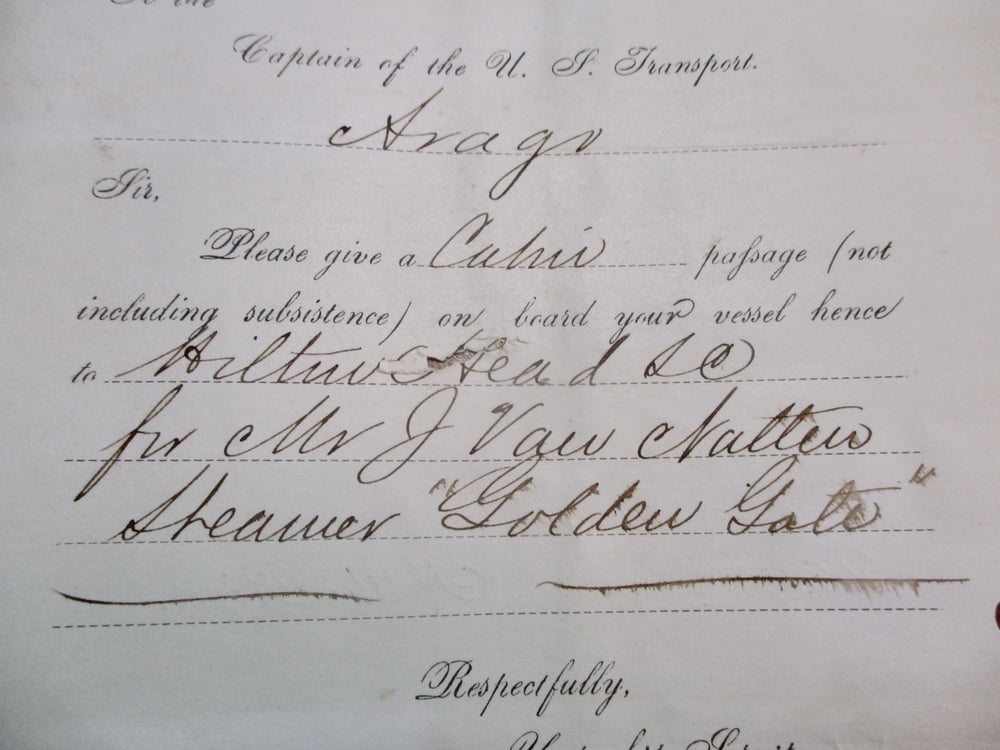 To the
Captain of the U. S. Transport.
Arago
Sir,
Please give a Cabin passage (not
including subsistence) on board your vessel hence
to Hilton Head S C
for Mr J Van Natten
Steamer "Golden Gate"
Respectfully,